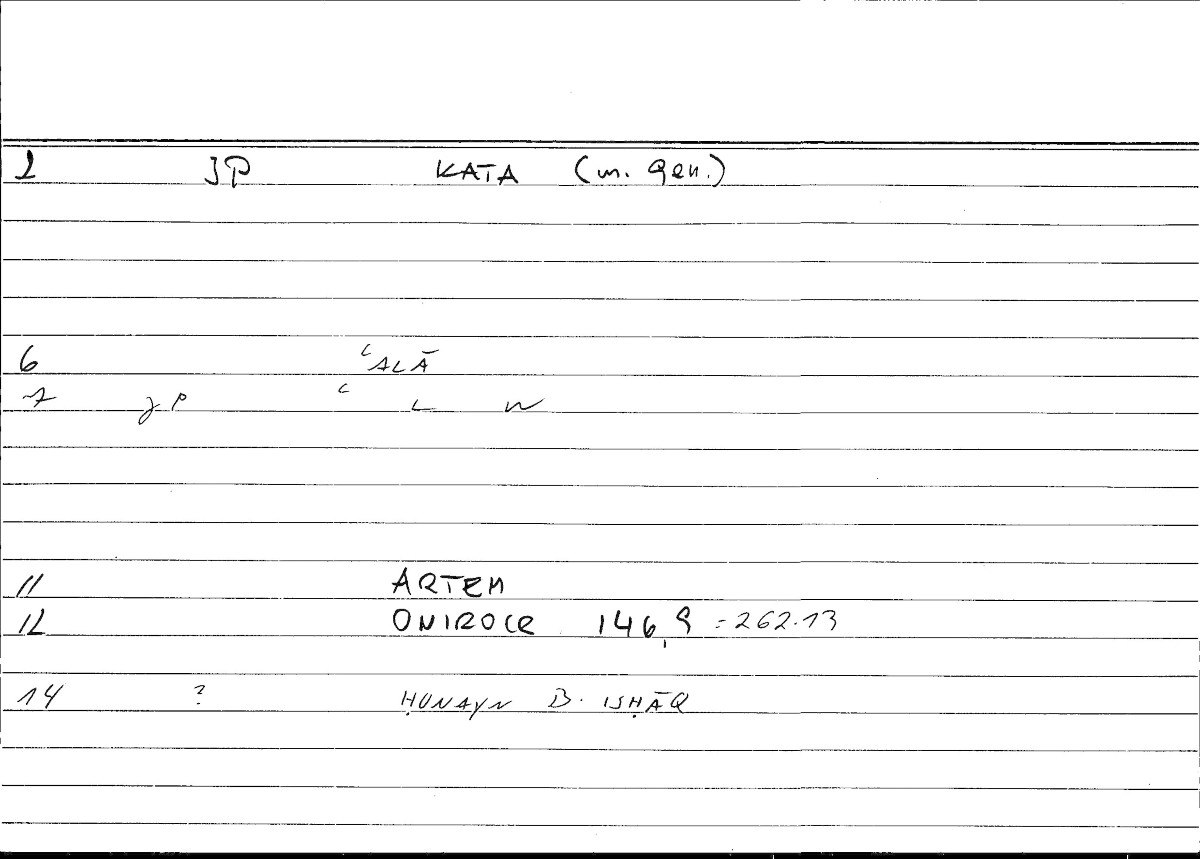 2 JP KATA (m. Gen.)
6 ʿALĀ
7 JP ʿ L W
11 ARTEM
12 ONIROCR 146,9 = 262.13
14 ? ḤUNAYN B. ISḤĀQ